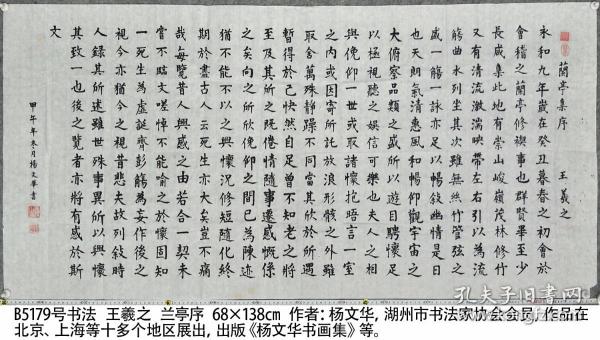 蘭亭集序 王羲之
永和九年歲在癸丑暮春之初會於
會稽之蘭亭修禊事也群賢畢至少
長咸集此地有崇山峻嶺茂林修竹
又有清流激湍映帶左右引以為流
觴曲水列坐其次雖無絲竹管弦之
盛一觴一詠亦足以暢敘幽情是日
也天朗氣清惠風和暢仰觀宇宙之
大俯察品類之盛所以遊目騁懷足
以極視聽之娛信可樂也夫人之相
與俛仰一世或取諸懷抱晤言一室
之內或因寄所託放浪形骸之外雖
取舍萬殊靜躁不同當其欣於所遇
暫得於己快然自足曾不知老之將
至及其所之既倦情隨事遷感慨係
之矣向之所欣俛仰之間已為陳迹
猶不能不以之興懷況修短隨化終
期於盡古人云死生亦大矣豈不痛
哉每覽昔人興感之由若合一契未
嘗不臨文嗟悼不能喻之於懷固知
一死生為虛誕齊彭殤為妄作後之
視今亦猶今之視昔悲夫故列敘時
人錄其所述雖世殊事異所以興懷
其致一也後之覽者亦將有感於斯
文
甲午年冬月楊文華書
B5179号书法 王羲之 兰亭序 68×138cm 作者：杨文华，湖州市书法家协会会员，作品在
北京、上海等十多个地区展出，出版《杨文华书画集》等。